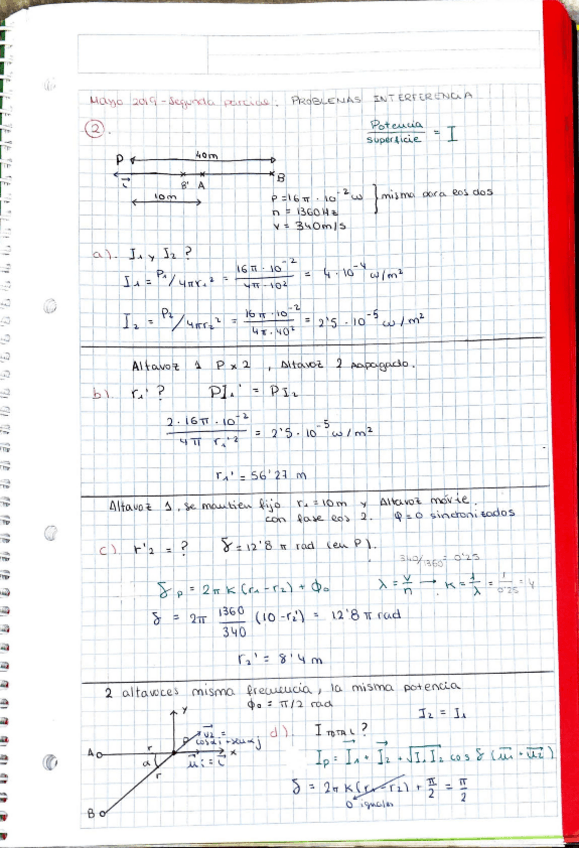 Mayo 2019 - Segunda parcial. PROBLEMAS INTERFERENCIA
②.
Potencia / superficie = I
P 40m
i B' A B
10m
P = 16π · 10⁻² w
n = 1360 Hz
v = 340 m/s
} misma para los dos
a). I₁ y I₂ ?
I₁ = P₁/4πr₁² = 16π · 10⁻² / 4π · 10² = 4 · 10⁻⁴ w/m²
I₂ = P₂/4πr₂² = 16π · 10⁻² / 4π · 40² = 2'5 · 10⁻⁵ w/m²
Altavoz 1 P x 2 , Altavoz 2 apagado.
b). r₁' ? PI₁' = PI₂
2 · 16π · 10⁻² / 4π r₁'² = 2'5 · 10⁻⁵ w/m²
r₁' = 56'27 m
Altavoz 1, se mantien fijo r₁ = 10m y Altavoz móvie.
con fase los 2. φ=0 sincronizados
c). r'₂ = ? δ = 12'8 π rad (en P).
340/1360 = 0'25
δp = 2πK(r₁-r₂) + φ₀ λ = v/n → K = 1/λ = 1/0'25 = 4
δ = 2π 1360/340 (10 - r₂') = 12'8 π rad
r₂' = 8'4 m
2 altavoces misma frecuencia, la misma potencia
φ₀ = π/2 rad
I₂ = I₁
y
A r x
α r
B
u₂ = cosα i + senα j
u₁ = i
d). I TOTAL ?
Ip = I₁ + I₂ + √I₁I₂ cos δ (u₁ · u₂)
δ = 2πK(r₁-r₂) + π/2 = π/2
0 iguales